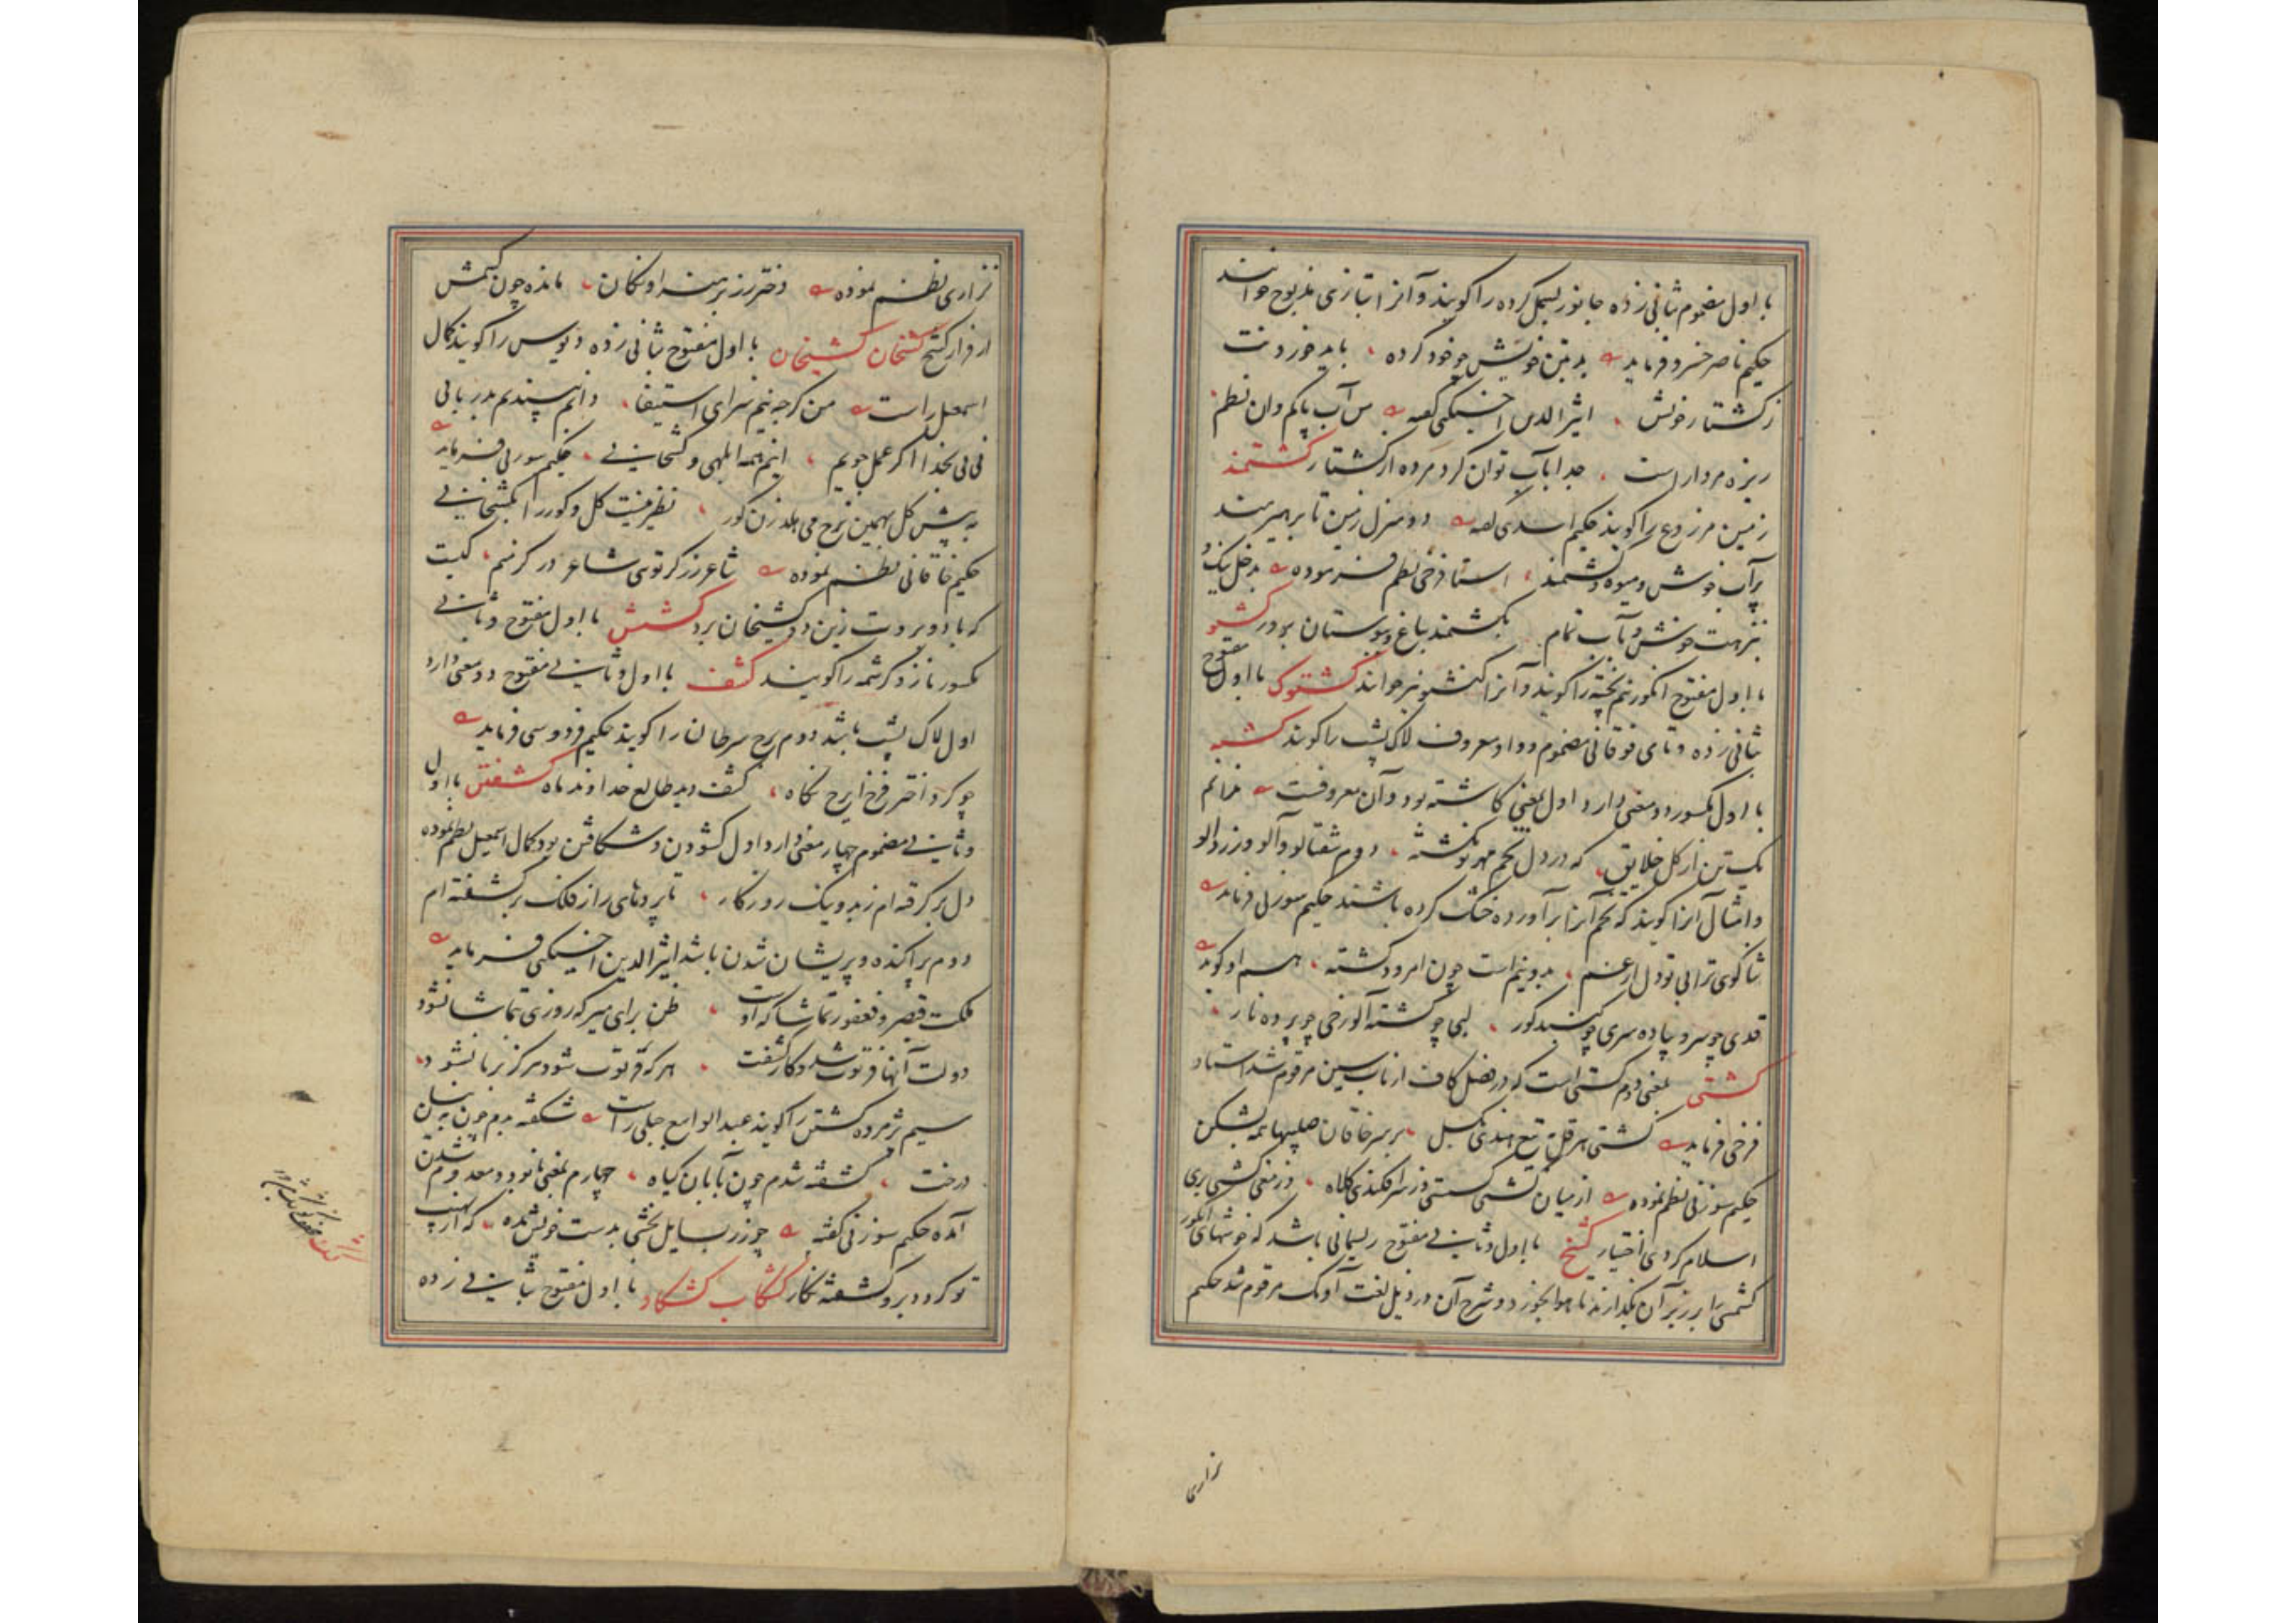 با اول مضموم بثانی زده جانور بسمل کرده را کویند و آنرا بتازی مذبوح خوانند
حکیم ناصر خسرو فرماید بدین خویش جو خود کرده باید خوردنت
ز کشتار خویش اثیر الدین اخسیکتی کفته من آب پاکم وان نطم
ریزه مردار است جدا بآب توان کرد مرده از کشتار کشتمند
زمین مزروع را کویند حکیم اسدی کفته دو منزل زمین تا بر هیرمند
پر آب خوش و میوه و کشتمند استاد فرخی نظم فرموده
نزهت خوش و بآب تمام بکشتمند و باغ و بوستان بر ور کشتو
با اول مفتوح انکور نیم پخته را کویند و آنرا کنشتو نیز خوانند کشتوک با اول مفتوح
بثانی زده و تای فوقانی مضموم و واو معروف لاک پشت را کویند کشته
با اول مکسور دو معنی دارد اول بمعنی کاشته بود و آن معروفست ندانم
یک تن از کل خلایق که در دل تخم مهر تو نکشته دوم شفتالو و آلو و زردالو
و امثال آنرا کویند که تخم آنرا برآورده خشک کرده باشند حکیم سوزنی فرماید
ثنا کوی ترا بی تو دل از غم بدو نیم است چون امرود کشته هم او کوید
قدی جو سرو پیاده سری جو کنبد کور لبی چو کشته آلو رخی چو پرده نار
کشتی بمعنی دوم کستی است که در فصل کاف از باب سین مرقوم شد استاد
فرخی فرماید کشتی هرقل بتیغ هندی بکسل بر سر خاقان صلیبها همه بشکن
حکیم سوزنی نظم نموده از میان کشتی کسستی وز سر افکندی کلاه وز مغی کشتی بری
اسلام کردی اختیار کشخ با اول و ثانی مفتوح ریسمانی باشد که خوشهای انکور
کشمش را بر زبر آن بکذارند تا هوا بخورد و شرح آن در ذیل لغت آونک مرقوم شد حکیم
نزاری
نزاری نظم نموده دختر رز برهنه اونکان مانده چون کشمش
از فراز کشخ کشخان کشیخان با اول مفتوح بثانی زده دیوس را کویند کمال
اسمعیل راست من کرچه نیم سزای استیفا دانم بپسندیم بدربانی
نی نی بخدا اکر عمل جویم اینهمه ابلهی و کشخانی حکیم سوزنی فرماید
به پیش کل بهمین نرخ می هلد زن کور نظیر نیست کل و کور را بکشخانی
حکیم خاقانی نظم نموده شاعر زرکر توی شاعر درکر منم کیت
که باد و بروت زین دو کشیخان برد کشش با اول مفتوح و ثانی
مکسور ناز و کرشمه را کویند کشف با اول و ثانی مفتوح دو معنی دارد
اول لاک پشت باشد دوم برج سرطان را کویند حکیم فردوسی فرماید
چو کرد اختر فرخ ایرج نکاه کشف دید طالع خداوند ماه کشفتن با اول
و ثانی مضموم چهار معنی دارد اول کشودن و شکافتن بود کمال اسمعیل نظم نموده
دل بر کرفته ام ز بد و نیک روزکار تا پردهای راز فلک بر کشفته ام
دوم پراکنده و پریشان شدن باشد اثیر الدین اخسیکتی فرماید
ملکت قیصر و فغفور تماشاکه اوست ظن برای میر که روزی بتماشا نشود
دولت آنها فرتوت شد و کار کشفت هر که فرتوت شود هرکز برنا نشود
سیم پژمرده کشتن را کویند عبد الواسع جبلی راست شکفته بدم چون به نیسان
درخت کشفته شدم چون بآبان کیاه چهارم بمعنی نابود و معدوم شدن
آمده حکیم سوزنی کفته چو زر بسایل بخشی بدست خویش بده که از نهیب
تو کردد برو کشفته نکار کشکاب کشکاو با اول مفتوح بثانی زده